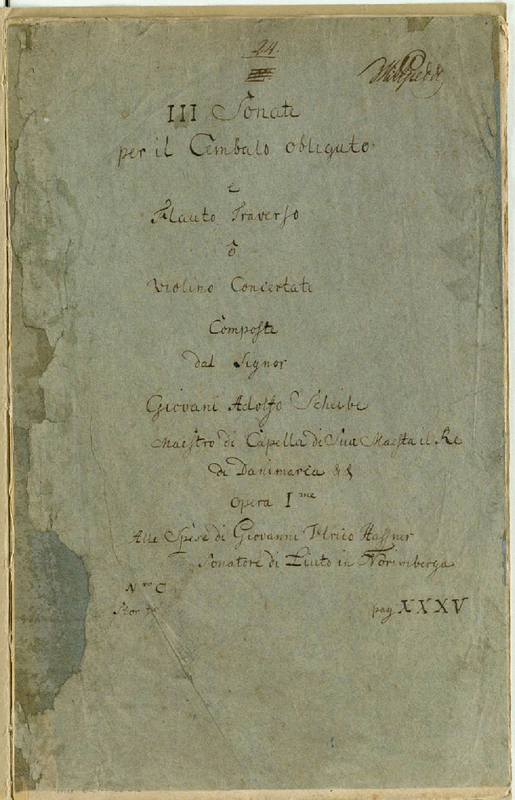 24.
III Sonate
per il Cembalo obligato
e
Flauto Traverso
ô
Violino Concertate
Composte
dal Signor
Giovani Adolfo Scheibe
Maestro di Capella di Sua Maesta il Re
di Danimarca &&
Opera I me
Alle Spese di Giovanni Ulrico Haffner
Sonatore di Liuto in Norimberga
Nro C
pag XXXV